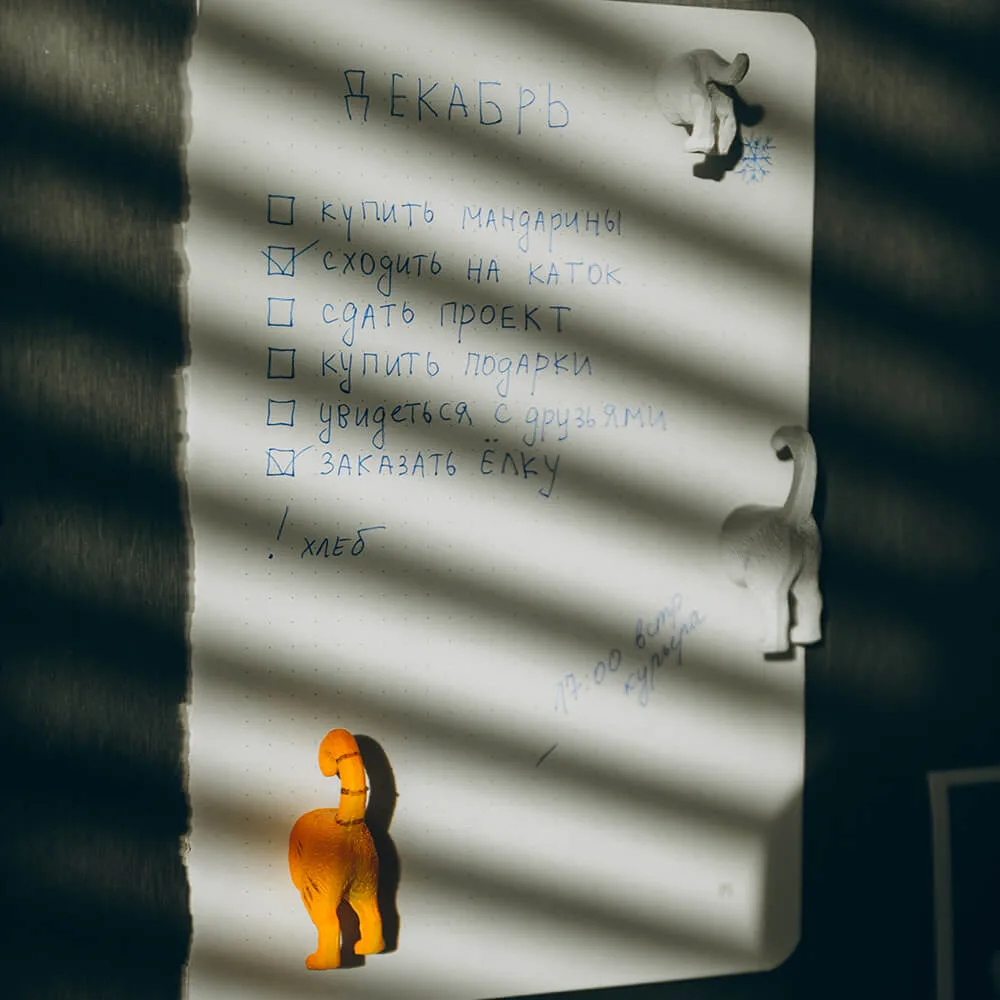 ДЕКАБРЬ
купить мандарины
сходить на каток
сдать проект
купить подарки
увидеться с друзьями
заказать ёлку
! хлеб
17:00 встр
курьера